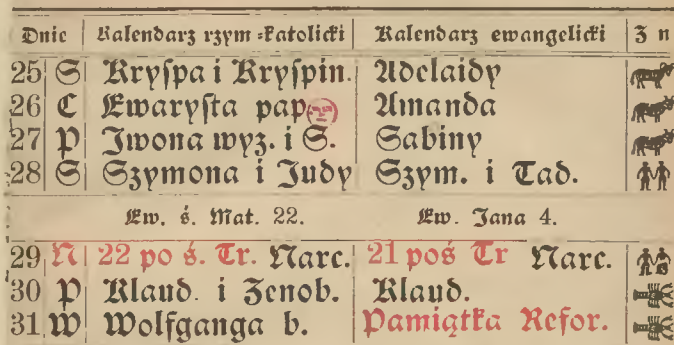 Dnie Kalendarz rzym=katolicki Kalendarz ewangelicki Zn
25 S Kryſpa i Kryſpin. Adelaidy
26 C Ewaryſta pap. Amanda
27 P Iwona wyz. i S. Sabiny
28 S Szymona i Judy Szym. i Tad.
Ew. ś. Mat. 22. Ew. Jana 4.
29 N 22 po ś. Tr. Narc. 21 poś Tr Narc.
30 P Klaud. i Zenob. Klaud.
31 W Wolfganga b. Pamiątka Refor.